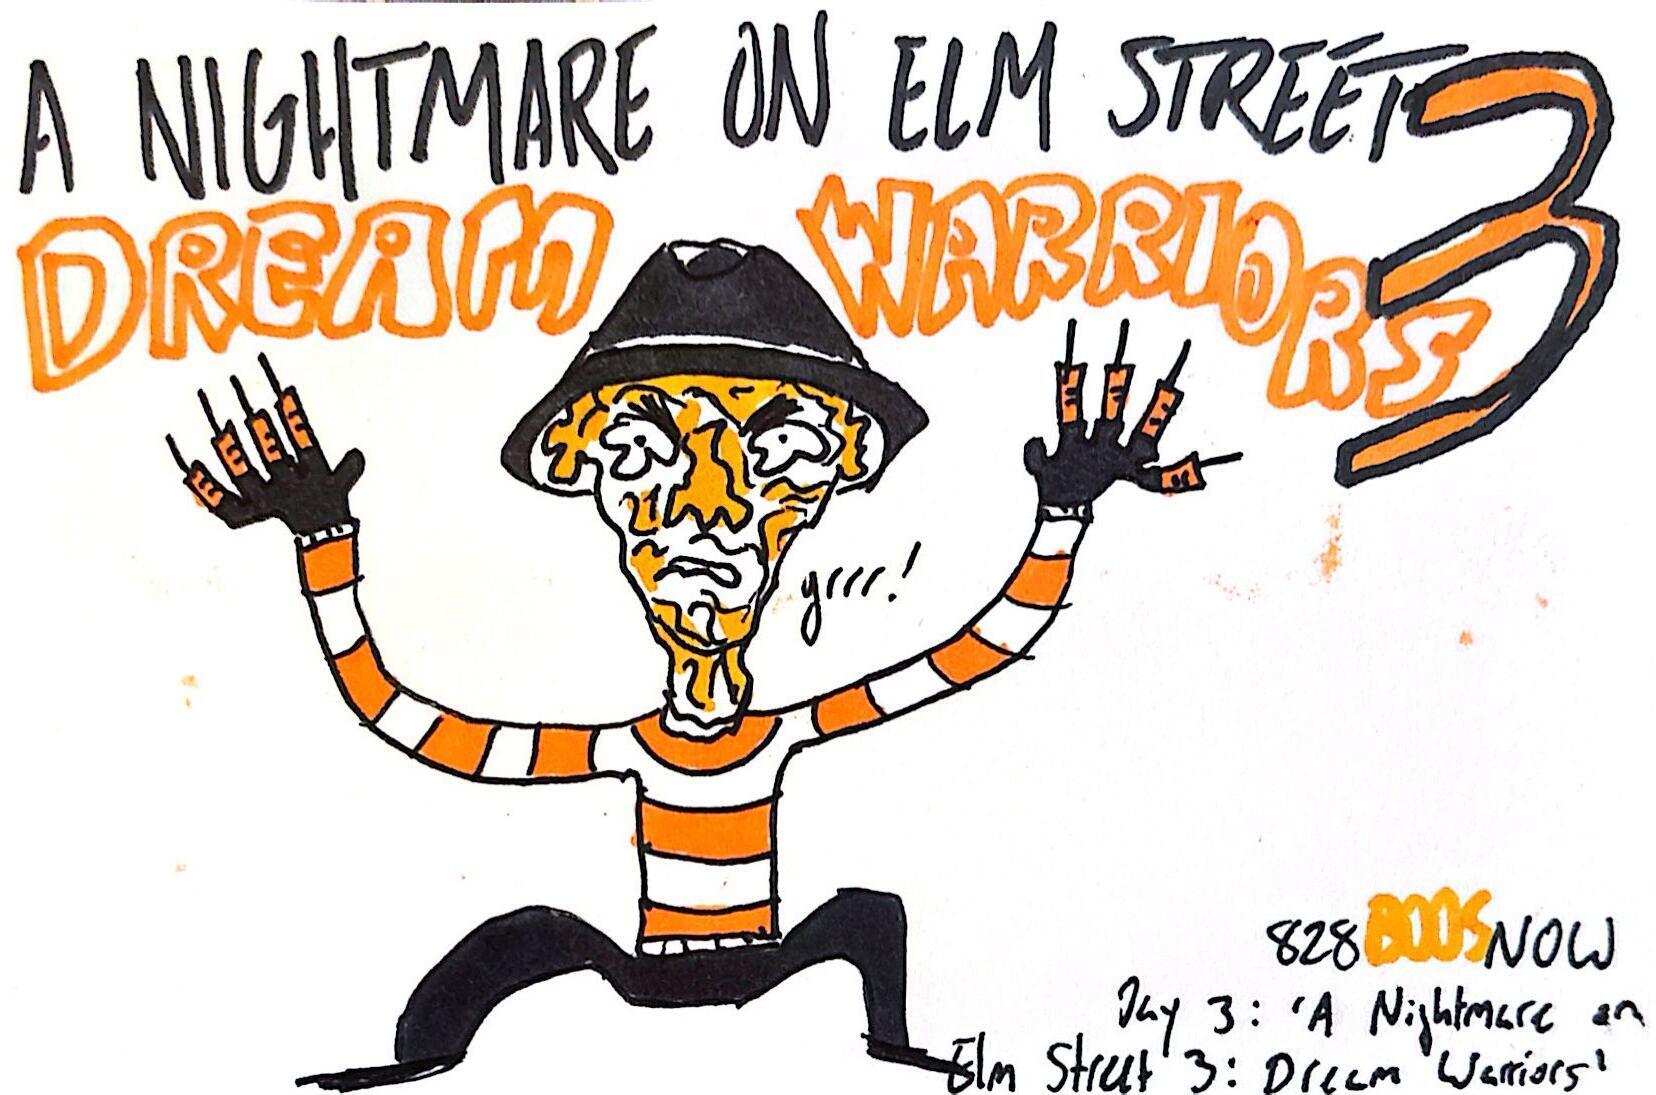 A NIGHTMARE ON ELM STREET 3
DREAM WARRIORS
grrr!
828BOOSNOW
Day 3: 'A Nightmare on
Elm Street 3: Dream Warriors'